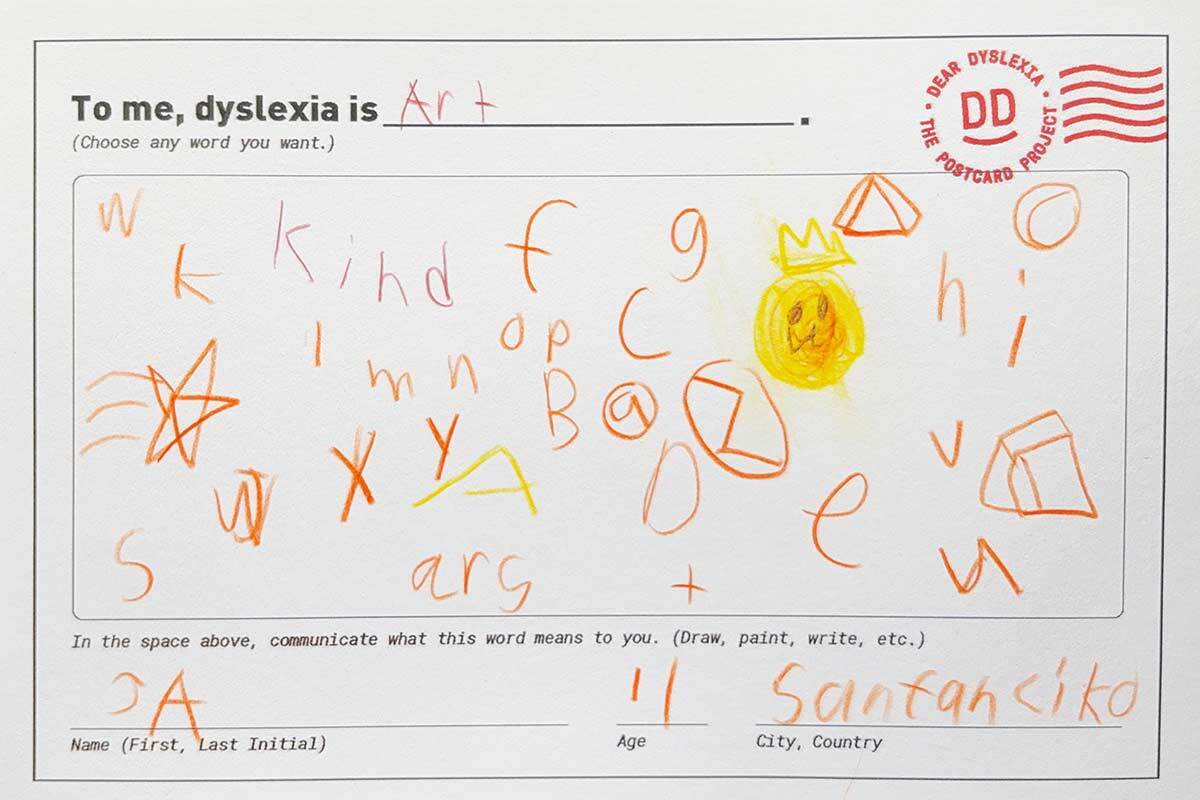 To me, dyslexia is Art.
(Choose any word you want.)
DEAR DYSLEXIA • THE POSTCARD PROJECT •
DD
w kind f g
k h i
l op C
m n B a Z
w x y A D e v
s ars t u
In the space above, communicate what this word means to you. (Draw, paint, write, etc.)
JA 11 Sanfanciko
Name (First, Last Initial) Age City, Country